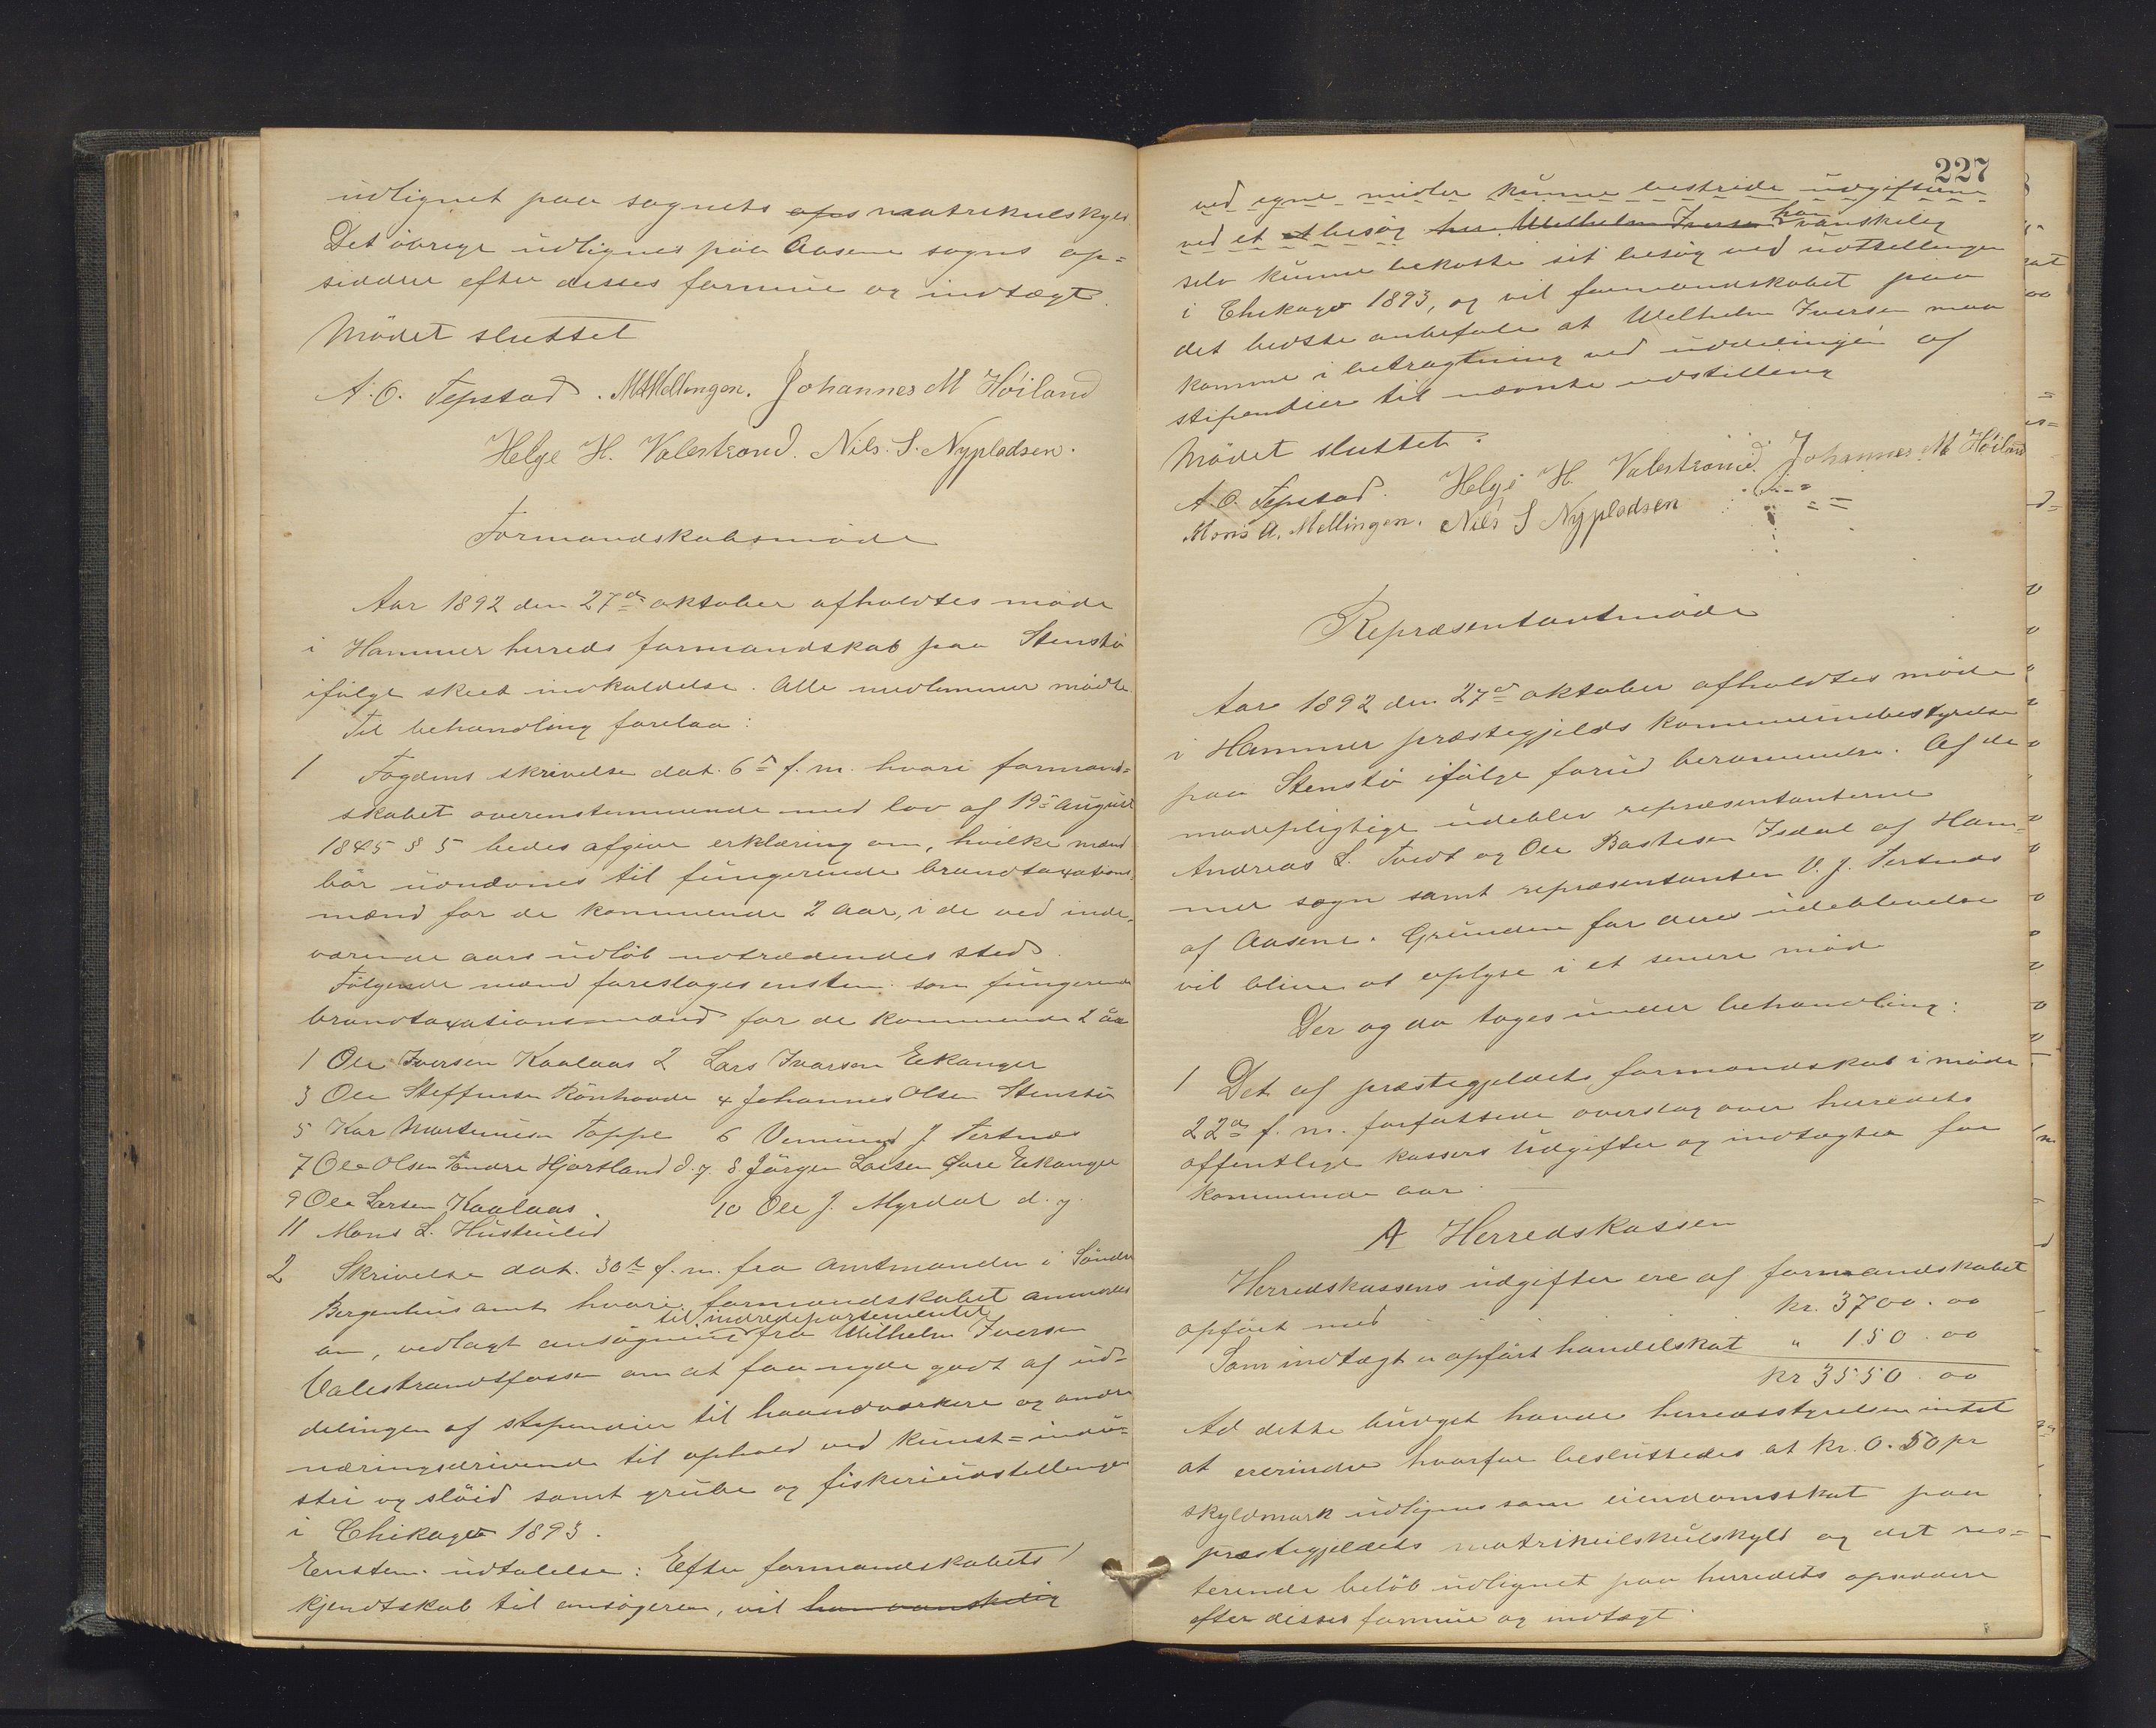 udlignet paa sognets ops matrikulskyld
Det övrige udlignes paa Aasene sogns op=
siddere efter disses formue og indtægt.
Mödet sluttet
A. O. Tepstad. M A Mellingen. Johannes M Höiland
Helge H. Valestrand. Nils. S. Nyplodsen.
Formandskabsmöde
Aar 1892 den 27de oktober afholdtes möde
i Hammer herreds formandskab paa Stenstö
ifölge skeed indkaldelse. Alle medlemmer mödte.
Til behandling forelaa:
1 Fogdens skrivelse dat. 6te f. m. hvori formand=
skabet overenstemmende med lov af 19de August
1845 § 5 bedes afgive erklæring om, hvilke mænd
bör uondvnes til fungerende brandtaxations=
mænd for de kommende 2 aar, i de ved inde=
værende aars udlöb udtrædendes sted.
Fölgende mænd foreslages enstem. som fungerende
brandtaxationsmænd for de kommende 2 aar
1 Ole Iversen Kaalaas 2 Lars Ivarsen Eikanger
3 Ole Steffensen Rönhovde 4 Johannes Olsen Stenstö
5 Kar Martinusen Toppe 6 Vemund J Tertnæs
7 Ole Olsen Söndre Hjortland d. y. 8 Jörgen Larsen Eikanger
9 Ole Larsen Kaalaas. 10 Ole J. Myrdal d. y.
11 Mons L. Husteulid
2 Skrivelse dat. 30te f. m. fra Amtmanden i Söndre
Bergenhus amt hvori formandskabet anmodes
til indredepartementet
om, vedlagt ansögning fra Wilhelm Iversen
Valestrandsfossen om at faa nyde godt af ud=
delingen af stipendier til haandværkere og andre
næringsdrivende til ophold ved kunst= indu=
stri og slöid samt grube og fiskeriudstillingen
i Chikago 1893.
Enstem. udtalelse: Efter formandskabets
kjendskab til ansögeren, vil han vanskelig
227
ved egne midler kunne bestride udgifterne
han
ved et besög hr. Wilhelm Iversen vanskelig
selv kunne bekoste sit besög ved udstellingen
i Chikago 1893, og vil formandskabet paa
det bedste anbefale at Wilhelm Iversen maa
komme i betragtning ved uddelingen af
stipendier til nævnte udstilling
Mödet sluttet.
A. O. Tepstad. Helge H. Valestrand. Johannes M Höiland
Mons A. Mellingen. Nils S Nyplodsen
Repræsentantmöde
Aar 1892 den 27de oktober afholdtes möde
i Hammer præstegjelds kommunebestyrelse
paa Stenstö ifölge forud berammelse. Af de
mödepligtige udeblev repræsentanterne
Andreas L. Tvedt og Ole Bastesen Isdal af Ham=
mer sogn samt repræsentanten V. J. Tertnæs
af Aasene. Grunden for deres udeblivelse
vil blive at oplyse i et senere möde
Der og da toges under behandling:
1 Det af præstegjeldets formandskab i möde
22de f. m. forfattede overslag over herredets
offentlige kassers udgifter og indtægter for
kommende aar.
A Herredskassen
Herredskassens udgifter ere af formandskabet
opfört med kr. 3700. 00
Som indtægt er opfört handelskat " 150. 00
kr 3550. 00
Ad dette budget havde herredsstyrelsen intet
at ererindre hvorfor besluttedes at kr. 0.50 pr
skyldmark udlignes som eiendomsskat paa
præstegjeldets matrikulskulskyld og det res=
terende belöb udlignet paa herredets opsiddere
efter disses formue og indtægt.